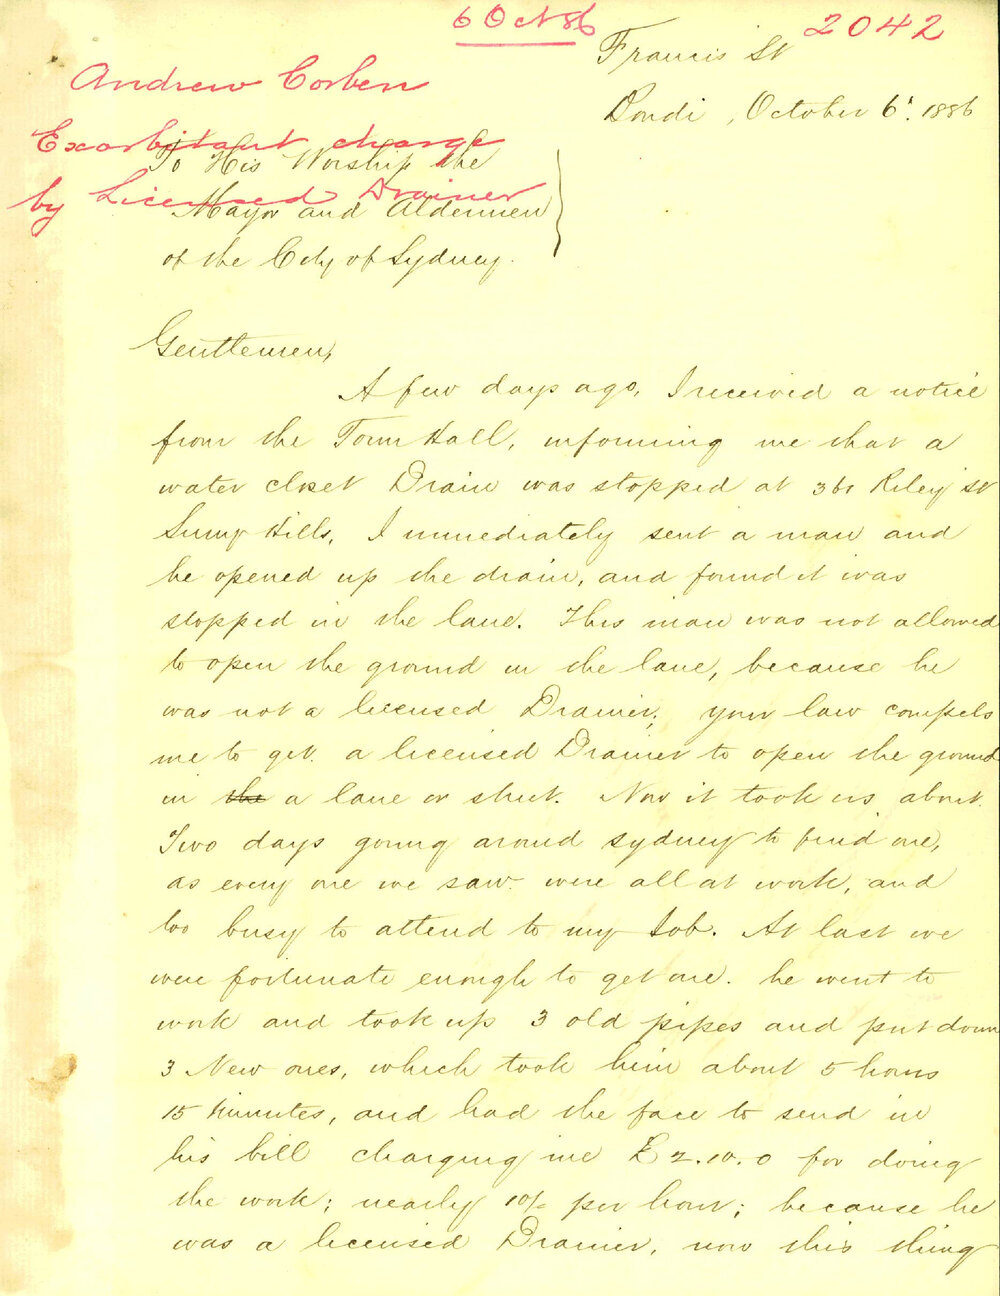 6 Oct 86
2042
Andrew Corben
Exorbitant charge
by Licensed Drainer
Francis St
Bondi, October 6. 1886
To His Worship the
Mayor and Aldermen
of the City of Sydney.
Gentlemen,
A few days ago, I received a notice
from the Town Hall, informing me that a
water closet Drain was stopped at Riley St
Surry Hills, I immediately sent a man and
he opened up the drain, and found it was
stopped in the lane. This man was not allowed
to open the ground in the lane, because he
was not a licensed Drainer; your law compels
me to get a licensed Drainer to open the ground
in the a lane or street. Now it took us about
Two days going around Sydney to find one,
as every one we saw were all at work, and
too busy to attend to my Job. At last we
were fortunate enough to get one. he went to
work and took up 3 old pipes and put down
3 New ones, which took him about 5 hours
15 Minutes, and had the face to send in
his bill charging me £2.10.0 for doing
the work; nearly 10/- per hour; because he
was a licensed Drainer, now this thing